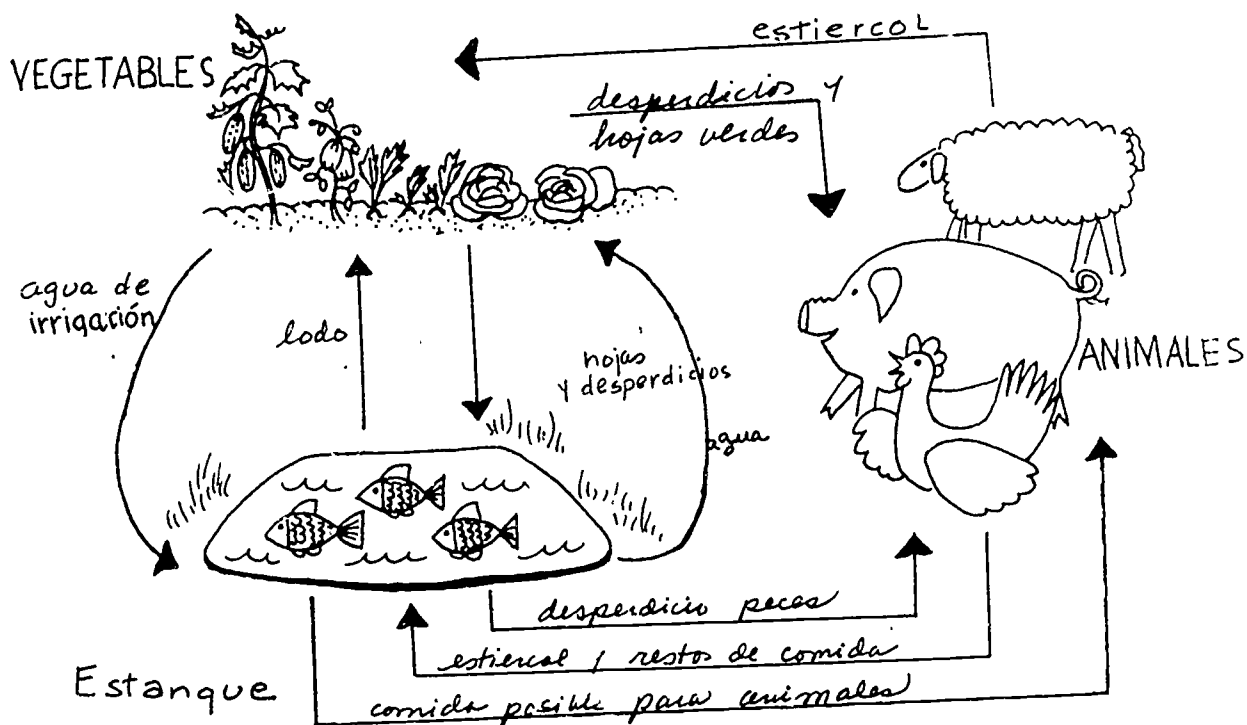 estiercol
VEGETABLES
desperdicios y
hojas verdes
agua de
irrigación
lodo
hojas
y desperdicios
agua
ANIMALES
desperdicio peces
estiercol y restos de comida
Estanque
comida posible para animales